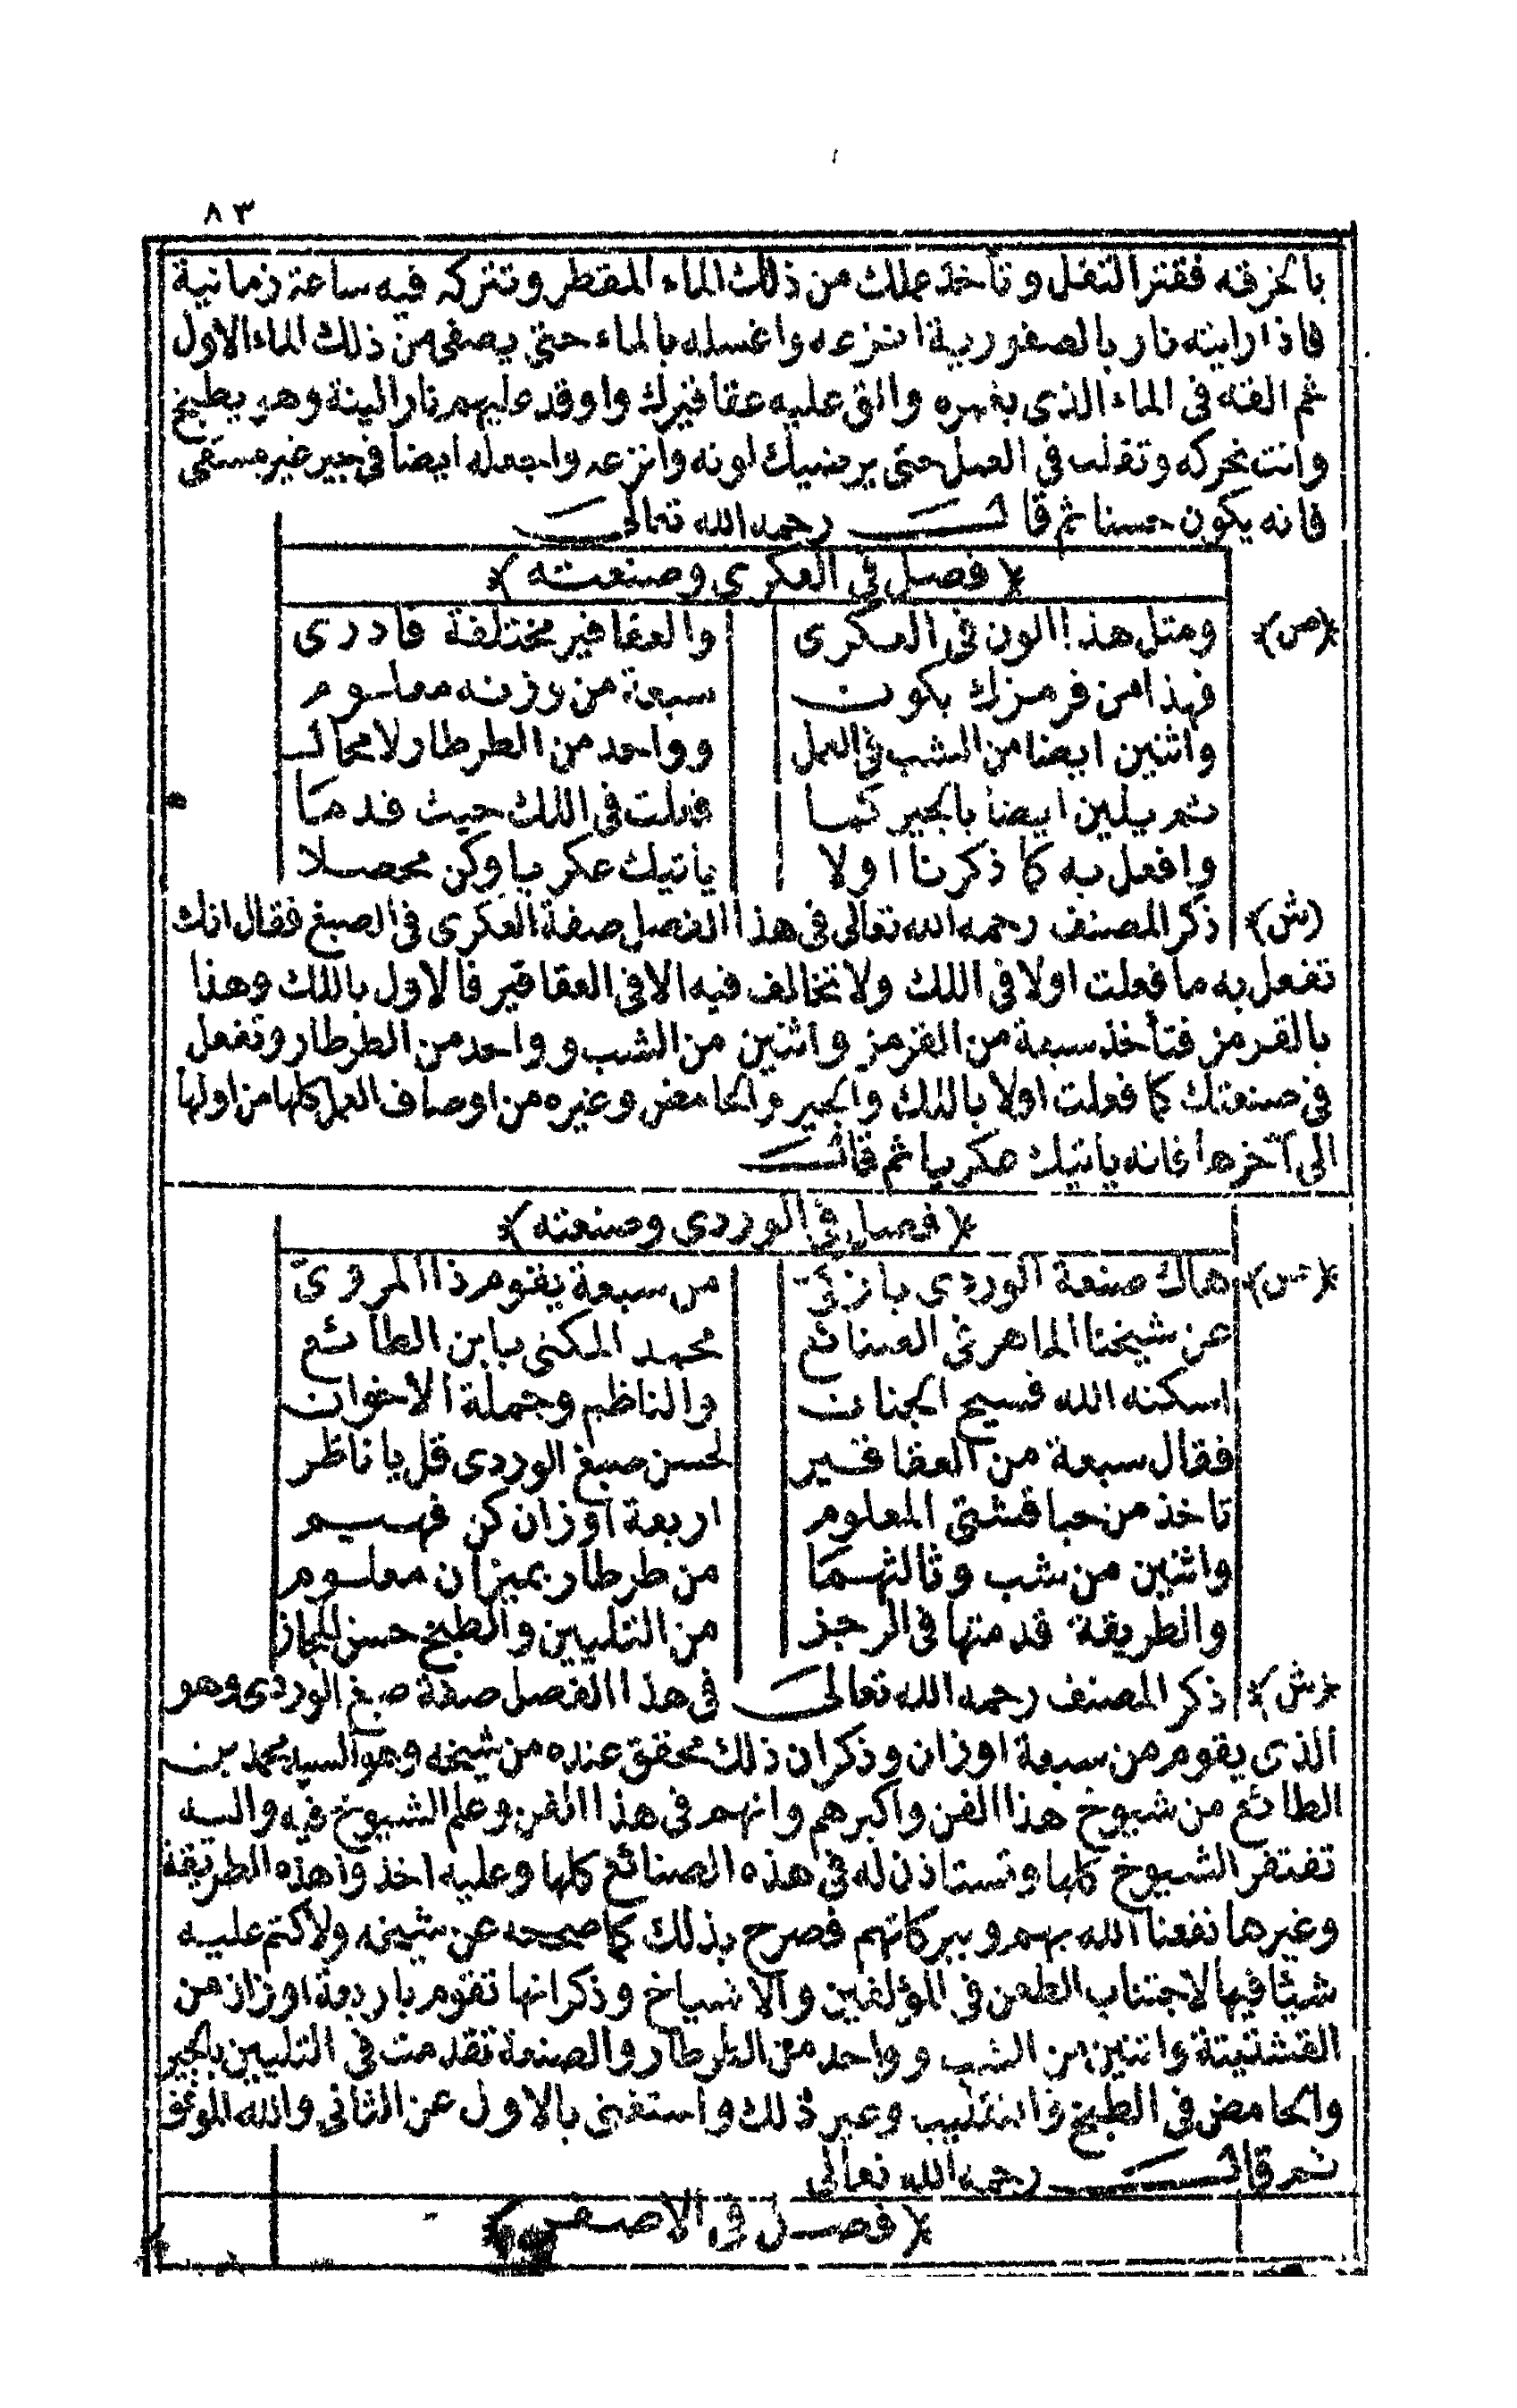 ٨٣
بالخرقه فقتر التفل وتأخذ عملك من ذلك الماء المقطر وتتركه فيه ساعة زمانية
فاذا رايته نار بالصفورية انزعه واغسله بالماء حتى يصفى من ذلك الماء الاول
ثم القه فى الماء الذى بغمره والق عليه عقاقيرك واوقد عليهم نارا لينة وهو يطبخ
وانت تحركه وتقلب فى العمل حتى يرضيك لونه وانزعه واجعله ايضا فى جير غير مستقى
فانه يكون حسنا ثم قال رحمه الله تعالى
﴿فصل فى العكرى وصنعته﴾
﴿ص﴾ ومثل هذا الون فى العكرى والعقاقير مختلفة فادرى
فهذا من قرمزك بكون سبعة من وزنه معلوم
واثنين ايضا من الشب فى العمل وواحد من الطرطار لا محال
ثم يلين ايضا بالجير كما فعلت فى اللك حيث قدما
وافعل به كما ذكرنا اولا يأتيك عكريا وكن محصلا
﴿ش﴾ ذكر المصنف رحمه الله تعالى فى هذا الفصل صفة العكرى فى الصبغ فقال انك
تفعل به ما فعلت اولا فى اللك ولا تخالف فيه الا فى العقاقير فالاول باللك وهذا
بالقرمز فتأخذ سبعة من القرمز واثنين من الشب وواحد من الطرطار وتفعل
فى صنعتك كما فعلت اولا باللك والجير والحامض وغيره من اوصاف العمل كلها من اولها
الى آخرها فانه ياتيك عكريا ثم قال
﴿فصل فى الوردى وصنعته﴾
﴿ص﴾ هاك صنعة الوردى يا زكىّ من سبعة يقوم ذا المروىّ
عن شيخنا الماهر فى الصنائع محمد المكنى بابن الطائع
اسكنه الله فسيح الجنان والناظم وجملة الاخوان
فقال سبعة من العقاقير لحسن صبغ الوردى قل يا ناظر
تاخذ من حبا قشتى المعلوم اربعة اوزان كن فهيم
واثنين من شب وثالثهما من طرطار بميزان معلوم
والطريقة قدمتها فى الرجز من التليين والطبخ حسن المجاز
﴿ش﴾ ذكر المصنف رحمه الله تعالى فى هذا الفصل صفة صبغ الوردى وهو
الذى يقوم من سبعة اوزان وذكر ان ذلك محقق عنده من شيخه وهو السيد محمد بن
الطائع من شيوخ هذا الفن واكبرهم وانهم فى هذا الفن وعلم الشيوخ فيه واليه
تفتقر الشيوخ كلها وتستاذن له فى هذه الصنائع كلها وعليه اخذوا هذه الطريقة
وغيرها نفعنا الله بهم وببركاتهم فصرح بذلك كما صححه عن شيخه ولا كتم عليه
شيئا فيها لاجتناب الطعن فى المؤلفين والاشياخ وذكر انها تقوم باربعة اوزان من
القشتيتة واثنين من الشب وواحد من الطرطار والصنعة تقدمت فى التليين بالجير
والحامض فى الطبخ والتقليب وغير ذلك واستغنى بالاول عن الثانى والله الموفق
ثم قال رحمه الله تعالى
﴿فصل فى الاصفر﴾